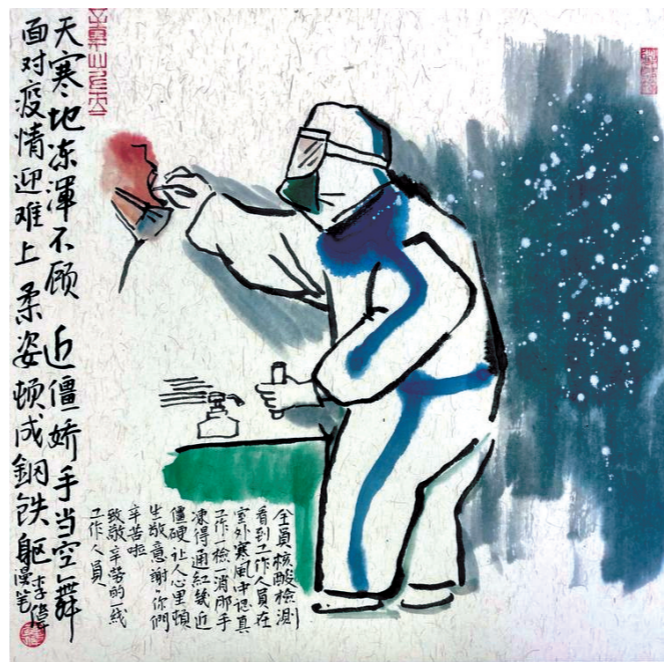 天寒地冻浑不顾 近僵娇手当空舞
面对疫情迎难上 柔姿顿成钢铁躯 李伟
漫笔
全员核酸检测
看到工作人员在
室外寒风中认真
工作一检一消那手
凍得通红幾近
僵硬让人心里顿
生敬意謝你們
辛苦啦
致敬辛劳的一线
工作人员